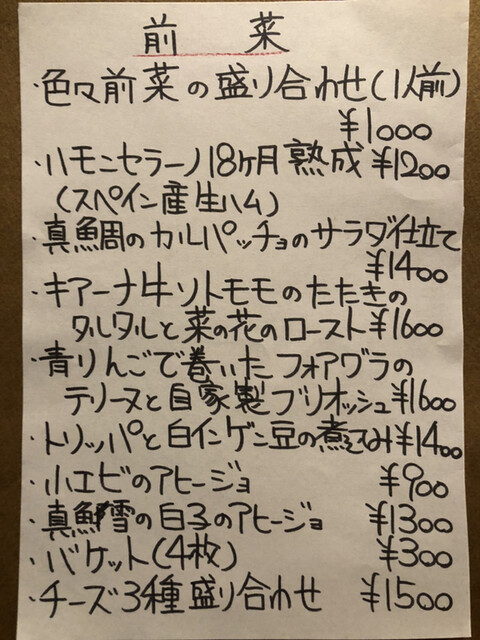 前菜
・色々前菜の盛り合わせ(1人前)
¥1000
・ハモンセラーノ18ヶ月熟成 ¥1200
(スペイン産生ハム)
・真鯛のカルパッチョのサラダ仕立て
¥1400
・キアーナ牛ソトモモのたたきの
タルタルと菜の花のロースト ¥1600
・青りんごで巻いたフォアグラの
テリーヌと自家製ブリオッシュ ¥1600
・トリッパと白インゲン豆の煮こみ ¥1400
・小エビのアヒージョ ¥900
・真鱈の白子のアヒージョ ¥1300
・バケット(4枚) ¥300
・チーズ3種盛り合わせ ¥1500